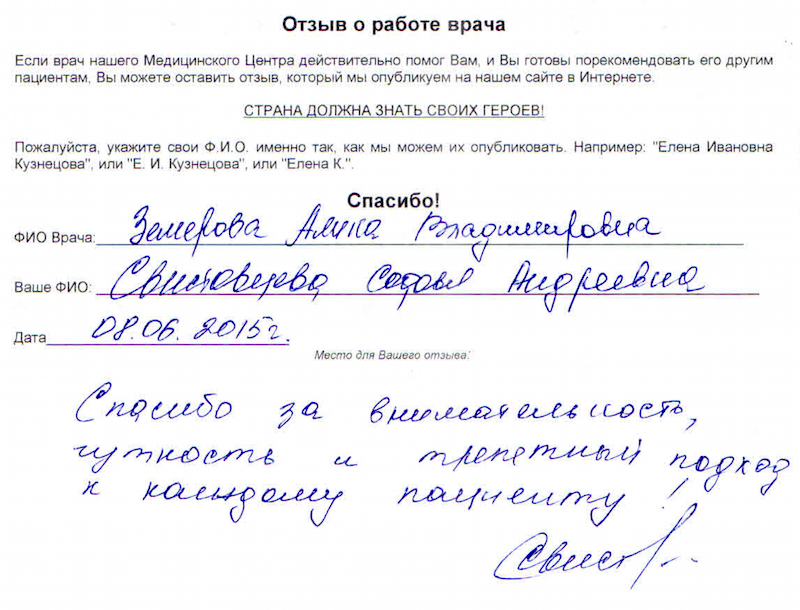 Отзыв о работе врача
Если врач нашего Медицинского Центра действительно помог Вам, и Вы готовы порекомендовать его другим
пациентам, Вы можете оставить отзыв, который мы опубликуем на нашем сайте в Интернете.
СТРАНА ДОЛЖНА ЗНАТЬ СВОИХ ГЕРОЕВ!
Пожалуйста, укажите свои Ф.И.О. именно так, как мы можем их опубликовать. Например: "Елена Ивановна
Кузнецова", или "Е. И. Кузнецова", или "Елена К.".
Спасибо!
ФИО Врача: Земерова Алика Владимировна
Ваше ФИО: Софья Андреевна
Дата 08.06.2015г.
Место для Вашего отзыва:
Спасибо за внимательность,
чуткость и трепетный подход
к каждому пациенту!